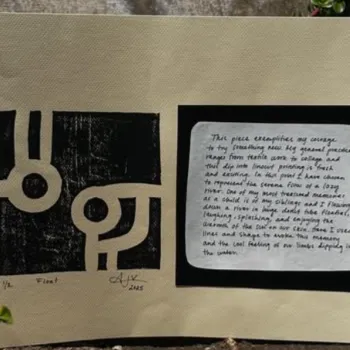 This piece exemplifies my courage
to try something new. My general practice
ranges from textile work to collage and
this dip into linocut printing is fresh
and exciting. In this print I have chosen
to represent the serene flow of a lazy
river. One of my most treasured memories
as a child is of my siblings and I floating
down a river in huge donut tube floaties,
laughing, splashing, and enjoying the
warmth of the sun on our skin. Here I used
lines and shape to evoke this memory
and the cool feeling of our limbs dipping in
the water.
1/2. Float AJK
2025